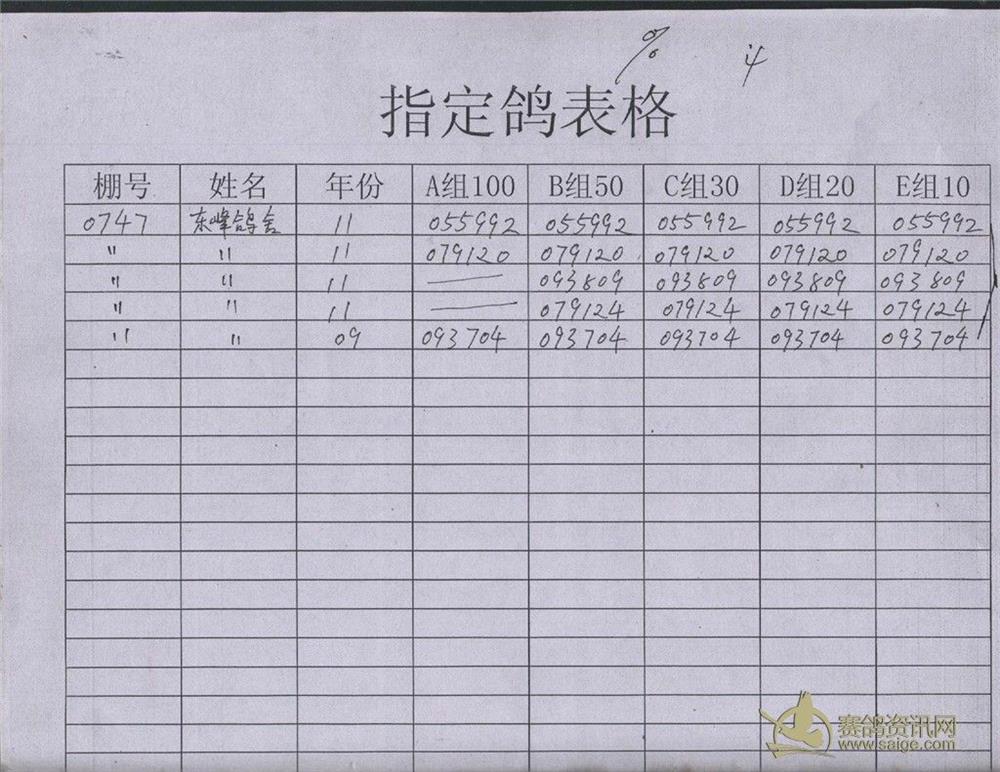 %
指定鸽表格
棚号 姓名 年份 A组100 B组50 C组30 D组20 E组10
0747 东峰鸽舍 11 055992 055992 055992 055992 055992
" " 11 079120 079120 079120 079120 079120
" " 11 — 093809 093809 093809 093809
" " 11 — 079124 079124 079124 079124
" " 09 093704 093704 093704 093704 093704
赛鸽资讯网
www.saige.com